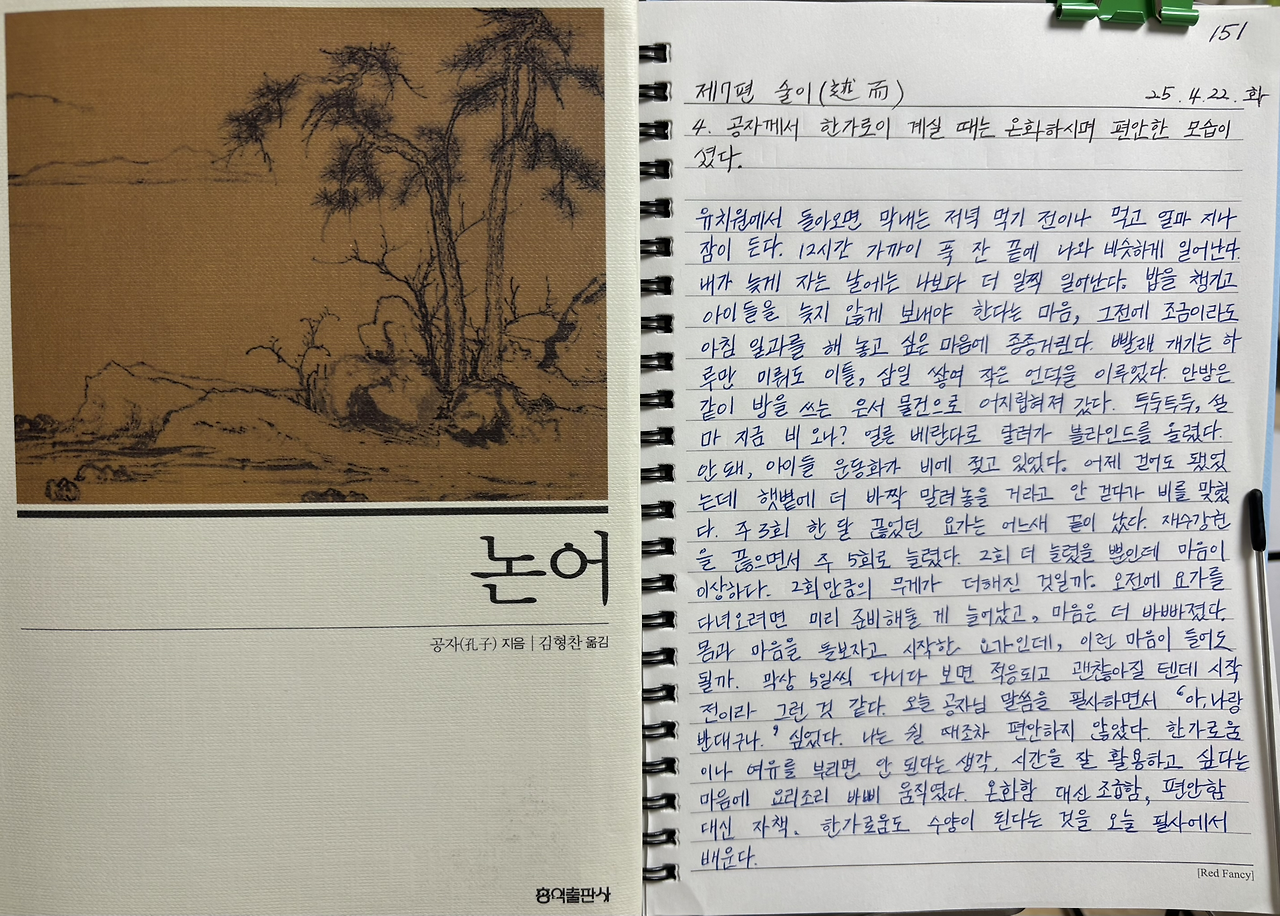 논어
공자(孔子) 지음 | 김형찬 옮김
홍익출판사
151
제7편 술이(述而) 25.4.22.화
4. 공자께서 한가로이 계실 때는 온화하시며 편안한 모습이
셨다.
유치원에서 돌아오면 막내는 저녁 먹기 전이나 먹고 얼마 지나
잠이 든다. 12시간 가까이 푹 잔 끝에 나와 비슷하게 일어난다.
내가 늦게 자는 날에는 나보다 더 일찍 일어난다. 밥을 챙기고
아이들을 늦지 않게 보내야 한다는 마음, 그전에 조금이라도
아침 일과를 해 놓고 싶은 마음에 종종거린다. 빨래 개기는 하
루만 미뤄도 이틀, 삼일 쌓여 작은 언덕을 이루었다. 안방은
같이 방을 쓰는 운서 물건으로 어지럽혀져 갔다. 투둑투둑, 설
마 지금 비 오나? 얼른 베란다로 달려가 블라인드를 올렸다.
안돼, 아이들 운동화가 비에 젖고 있었다. 어제 걷어도 됐었
는데 햇볕에 더 바짝 말려놓을 거라고 안 걷다가 비를 맞혔
다. 주 3회 한 달 끊었던 요가는 어느새 끝이 났다. 재수강권
을 끊으면서 주 5회로 늘렸다. 2회 더 늘렸을 뿐인데 마음이
이상하다. 2회만큼의 무게가 더해진 것일까. 오전에 요가를
다녀오려면 미리 준비해둘 게 늘어났고, 마음은 더 바빠졌다.
몸과 마음을 돌보자고 시작한 요가인데, 이런 마음이 들어도
될까. 막상 5일씩 다니다 보면 적응되고 괜찮아질 텐데 시작
전이라 그런 것 같다. 오늘 공자님 말씀을 필사하면서 '아, 나랑
반대구나.' 싶었다. 나는 쉴 때조차 편안하지 않았다. 한가로움
이나 여유를 부리면 안 된다는 생각. 시간을 잘 활용하고 싶다는
마음에 요리조리 바삐 움직였다. 온화함 대신 조급함, 편안함
대신 자책. 한가로움도 수양이 된다는 것을 오늘 필사에서
배운다.
[Red Fancy]